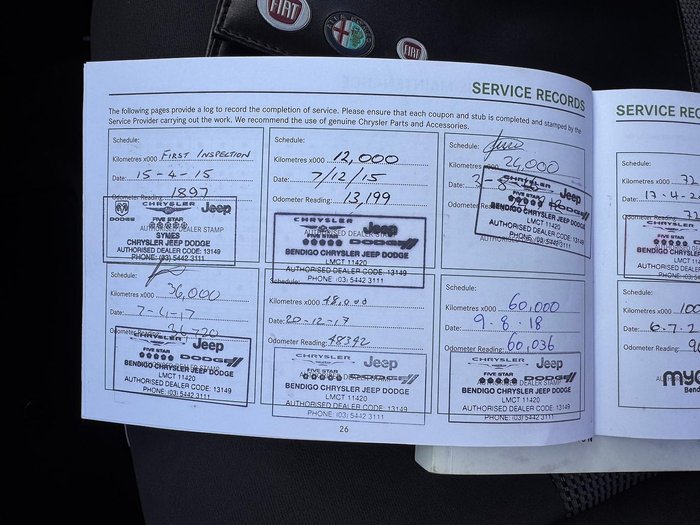 FIAT
FIAT
SERVICE RECORDS
The following pages provide a log to record the completion of service. Please ensure that each coupon and stub is completed and stamped by the
Service Provider carrying out the work. We recommend the use of genuine Chrysler Parts and Accessories.
Schedule:
Kilometres x000 FIRST INSPECTION
Date: 15-4-15
Odometer Reading: 1897
DODGE CHRYSLER Jeep
FIVE STAR
AUTHORISED DEALER STAMP
SYMES
CHRYSLER JEEP DODGE
AUTHORISED DEALER CODE: 13149
PHONE: (03) 5442 3111
Schedule:
Kilometres x000 12,000
Date: 7/12/15
Odometer Reading: 13,199
CHRYSLER Jeep
FIVE STAR DODGE
BENDIGO CHRYSLER JEEP DODGE
LMCT 11420
AUTHORISED DEALER CODE: 13149
PHONE: (03) 5442 3111
Schedule:
Kilometres x000 24,000
Date:
Odometer Reading:
CHRYSLER Jeep
FIVE STAR DODGE
BENDIGO CHRYSLER JEEP DODGE
LMCT 11420
AUTHORISED DEALER CODE: 13149
PHONE: (03) 5442 3111
Schedule:
Kilometres x000 36,000
Date:
Odometer Reading: 36720
CHRYSLER Jeep
FIVE STAR DODGE
BENDIGO CHRYSLER JEEP DODGE
LMCT 11420
AUTHORISED DEALER CODE: 13149
PHONE: (03) 5442 3111
Schedule:
Kilometres x000 48,000
Date: 20-12-17
Odometer Reading: 48392
CHRYSLER Jeep
FIVE STAR DODGE
BENDIGO CHRYSLER JEEP DODGE
LMCT 11420
AUTHORISED DEALER CODE: 13149
PHONE: (03) 5442 3111
Schedule:
Kilometres x000 60,000
Date: 9.8.18
Odometer Reading: 60,036
CHRYSLER Jeep
FIVE STAR DODGE
BENDIGO CHRYSLER JEEP DODGE
LMCT 11420
AUTHORISED DEALER CODE: 13149
PHONE: (03) 5442 3111
26
SERVICE REC
Schedule:
Kilometres x000 72
Date: 17.4.
Odometer Reading:
Schedule:
Kilometres x000 100
Date: 6.7.
Odometer Reading: